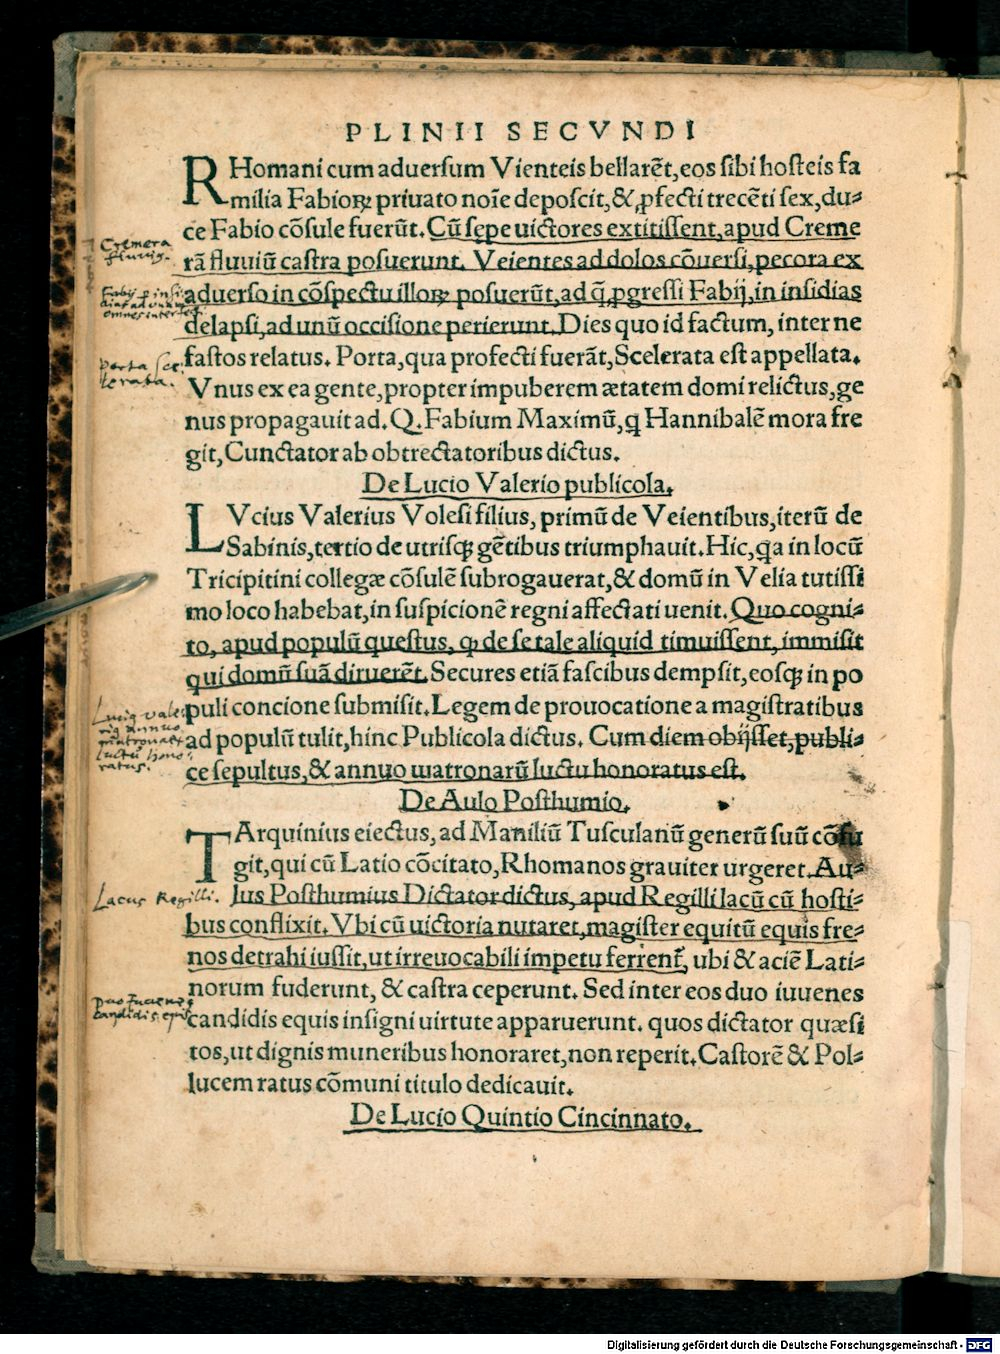 PLINII SECVNDI
RHomani cum aduersum Vienteis bellarēt, eos sibi hosteis fa
milia Fabioꝝ priuato noīe deposcit, & ꝓfecti trecēti sex, du⸗
ce Fabio cōsule fuerūt. Cū sępe uictores extitissent, apud Creme
rā fluuiū castra posuerunt. Veientes ad dolos cōuersi, pecora ex
aduerso in cōspectu illoꝝ posuerūt, ad q̄ ꝓgressi Fabij, in insidias
delapsi, ad unū occisione perierunt. Dies quo id factum, inter ne
fastos relatus. Porta, qua profecti fuerāt, Scelerata est appellata.
Vnus ex ea gente, propter impuberem ætatem domi relictus, ge
nus propagauit ad. Q. Fabium Maximū, q Hannibalē mora fre
git, Cunctator ab obtrectatoribus dictus.
De Lucio Valerio publicola.
LVcius Valerius Volesi filius, primū de Veientibus, iterū de
Sabinis, tertio de utrisqꝫ gētibus triumphauit. Hic, qa in locū
Tricipitini collegæ cōsulē subrogauerat, & domū in Velia tutissi
mo loco habebat, in suspicionē regni affectati uenit. Quo cogni⸗
to, apud populū questus, ꝙ de se tale aliquid timuissent, immisit
qui domū suā diruerēt. Secures etiā fascibus dempsit, eosqꝫ in po
puli concione submisit. Legem de prouocatione a magistratibus
ad populū tulit, hinc Publicola dictus. Cum diem obijsset, publi⸗
ce sepultus, & annuo matronarū luctu honoratus est.
De Aulo Posthumio.
TArquinius eiectus, ad Maniliū Tusculanū generū suū cōfu
git, qui cū Latio cōcitato, Rhomanos grauiter urgeret. Au⸗
lus Posthumius Dictator dictus, apud Regilli lacū cū hosti⸗
bus conflixit. Vbi cū uictoria nutaret, magister equitū equis fre⸗
nos detrahi iussit, ut irreuocabili impetu ferrent̄, ubi & aciē Lati⸗
norum fuderunt, & castra ceperunt. Sed inter eos duo iuuenes
candidis equis insigni uirtute apparuerunt. quos dictator quæsi
tos, ut dignis muneribus honoraret, non reperit. Castorē & Pol⸗
lucem ratus cōmuni titulo dedicauit.
De Lucio Quintio Cincinnato.
Cremera
fluuiꝰ.
Fabij
omnes interfec
Porta sce
lerata.
Luciꝰ Vale
riꝰ annuo
matronarū
luctu hono
ratus.
Lacus Regilli.
Duo Iuuenes
candidis equis
Digitalisierung gefördert durch die Deutsche Forschungsgemeinschaft - DFG